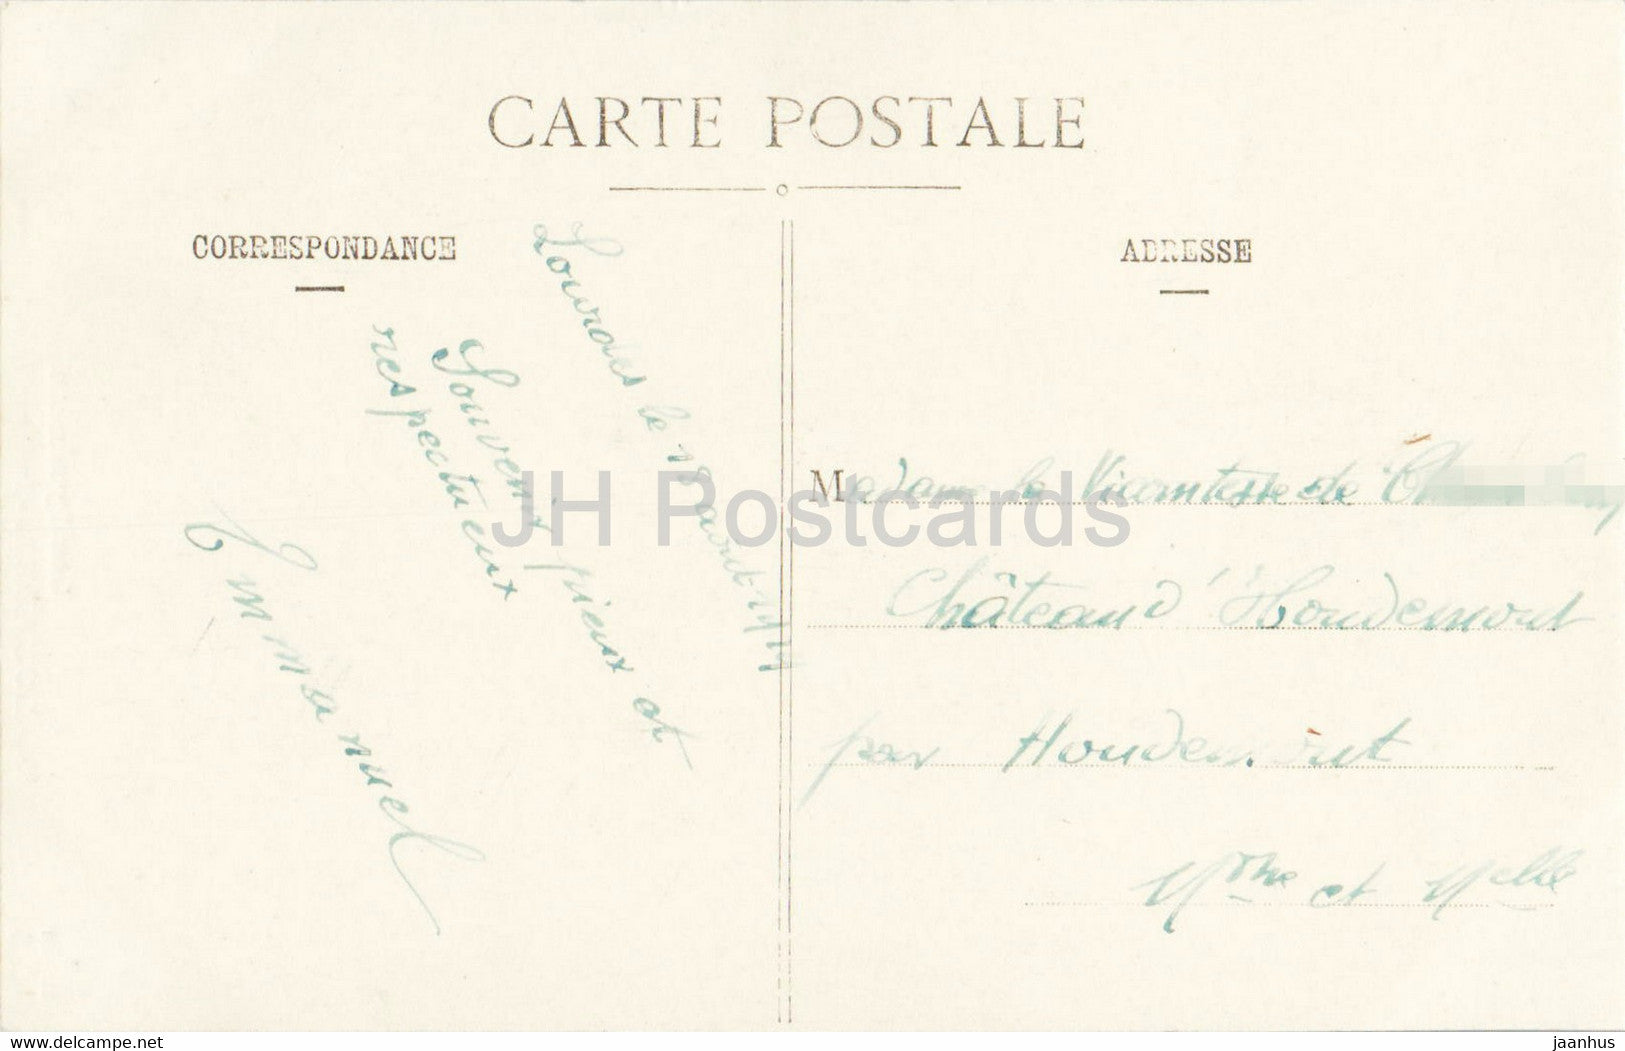 CARTE POSTALE
CORRESPONDANCE
Lourdes le 18 août 1914
Souvenir pieux et
respectueux
Emmanuel
ADRESSE
Madame la Vicomtesse de
Château d'Houdemont
par Houdemont
Mme et Melle
JH Postcards
www.delcampe.net
jaanhus